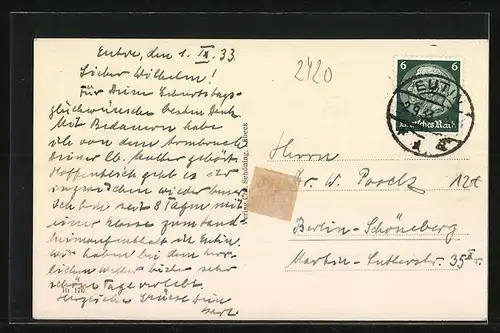 Eutin, den 1. IX. 33.
Lieber Wilhelm!
Für Deine Geburtstags-
glückwünsche besten Dank
Mit Bedauern habe
ich von dem Armbruch
Deiner lb. Mutter gehört.
Hoffentlich geht es ihr
inzwischen wieder besser
Ich bin seit 8 Tagen mit
einer Klasse zum Land-
heimaufenthalt in Eutin.
Wir haben bei dem herr-
lichen Wetter bisher sehr
schöne Tage verlebt.
Herzliche Grüsse Dein
Karl.
Nr. 176
Verlag Chr. Schöning, Lübeck
2420
6 6
EUTIN
Deutsches Reich
Herrn
Dr. W. Poock
Berlin-Schöneberg
Martin-Lutherstr. 35 II r.